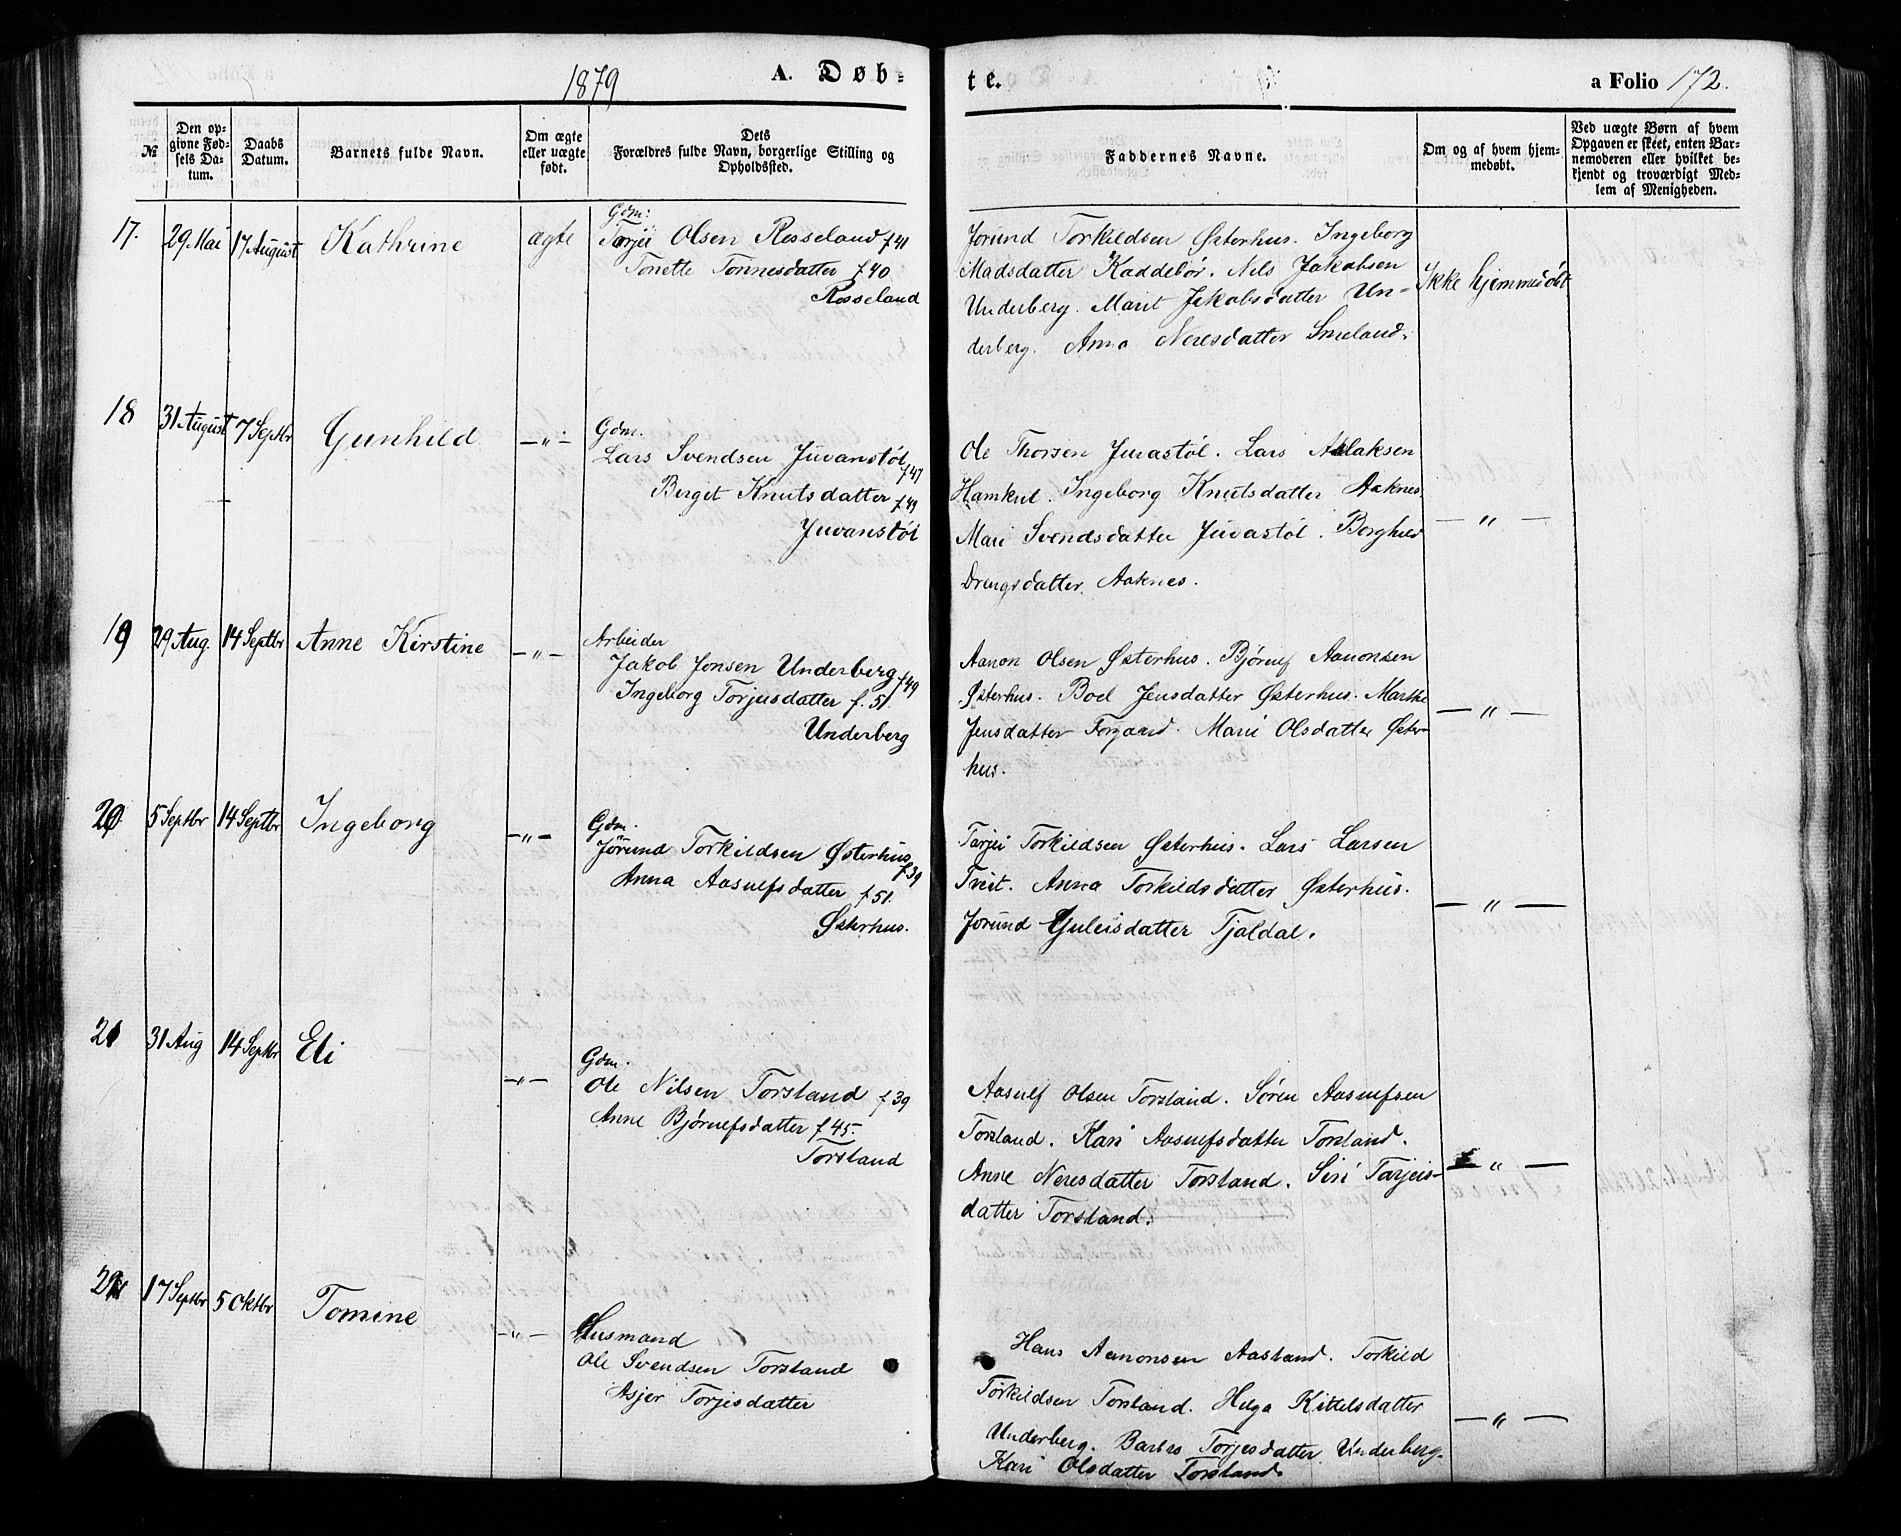 1879
A. Døb-
te.
a Folio 172.
№
Den opgivne Fødsels Datum.
Daabs Datum.
Barnets fulde Navn.
Om ægte eller uægte født.
Dets Forældres fulde Navn, borgerlige Stilling og Opholdssted.
Faddernes Navne.
Om og af hvem hjemmedøbt.
Ved uægte Børn af hvem Opgaven er skeet, enten Barnemoderen eller hvilket bekjendt og troværdigt Medlem af Menigheden.
17.
29 Mai
17 August
Kathrine
ægte
Gdm:
Tarjei Olsen Rosseland f 41
Tonette Tønnesdatter f 40
Rosseland
Jorund Torkildsen Østerhus. Ingeborg
Madsdatter Kaddebør. Nils Jakobsen
Underberg. Marit Jakobsdatter Un-
derberg. Anna Neresdatter Smeland.
Ikke hjemmedøbt
18
31 August
7 Septbr
Gunhild
—"—
Gdm.
Lars Svendsen Juvanstøl
f 47
Berget Knutsdatter f 49
Juvanstøl
Ole Thorsen Juvastøl. Lars Aslaksen
Hamkul. Ingeborg Knutsdatter Aaknes.
Mari Svendsdatter Juvastøl. Borghild
Drengsdatter Aaknes.
—"—
19
29 Aug.
14 Septbr
Anne Kirstine
—"—
Arbeider
Jakob Jonsen Underberg
f 49
Ingeborg Torjusdatter f. 51
Underberg
Aanon Olsen Østerhus. Bjørulf Aanonsen
Østerhus. Boel Jensdatter Østerhus. Marthe
Jensdatter Forgaard. Mari Olsdatter Øster-
hus.
—"—
20
5 Septbr
14 Septbr
Ingeborg
—"—
Gdm.
Jørund Torkildsen Østerhus
f 39
Anna Aasulfsdatter f 51.
Østerhus.
Tarjei Torkildsen Østerhus. Lars Larsen
Tveit. Anna Torkildsdatter Østerhus.
Jorund Gjuleisdatter Tjaldal.
—"—
21
31 Aug
14 Septbr
Eli
—"—
Gdm.
Ole Nilsen Torsland f 39
Anne Bjørulfsdatter f 45.
Torsland
Aasulf Olsen Torsland. Søren Aasulfsen
Torsland. Kari Aasulfsdatter Torsland.
Anne Neresdatter Torsland. Siri Tarjeis-
datter Torsland.
—"—
17 Septbr
5 Oktbr
Tomine
—"—
Husmand
Ole Svendsen Torsland
Asjer Torjesdatter
Hans Aanonsen Aasland. Torkild
Torkildsen Torsland. Helga Kittelsdatter
Underberg. Barbro Torjesdatter Underberg.
Kari Olsdatter Torsland.
—"—